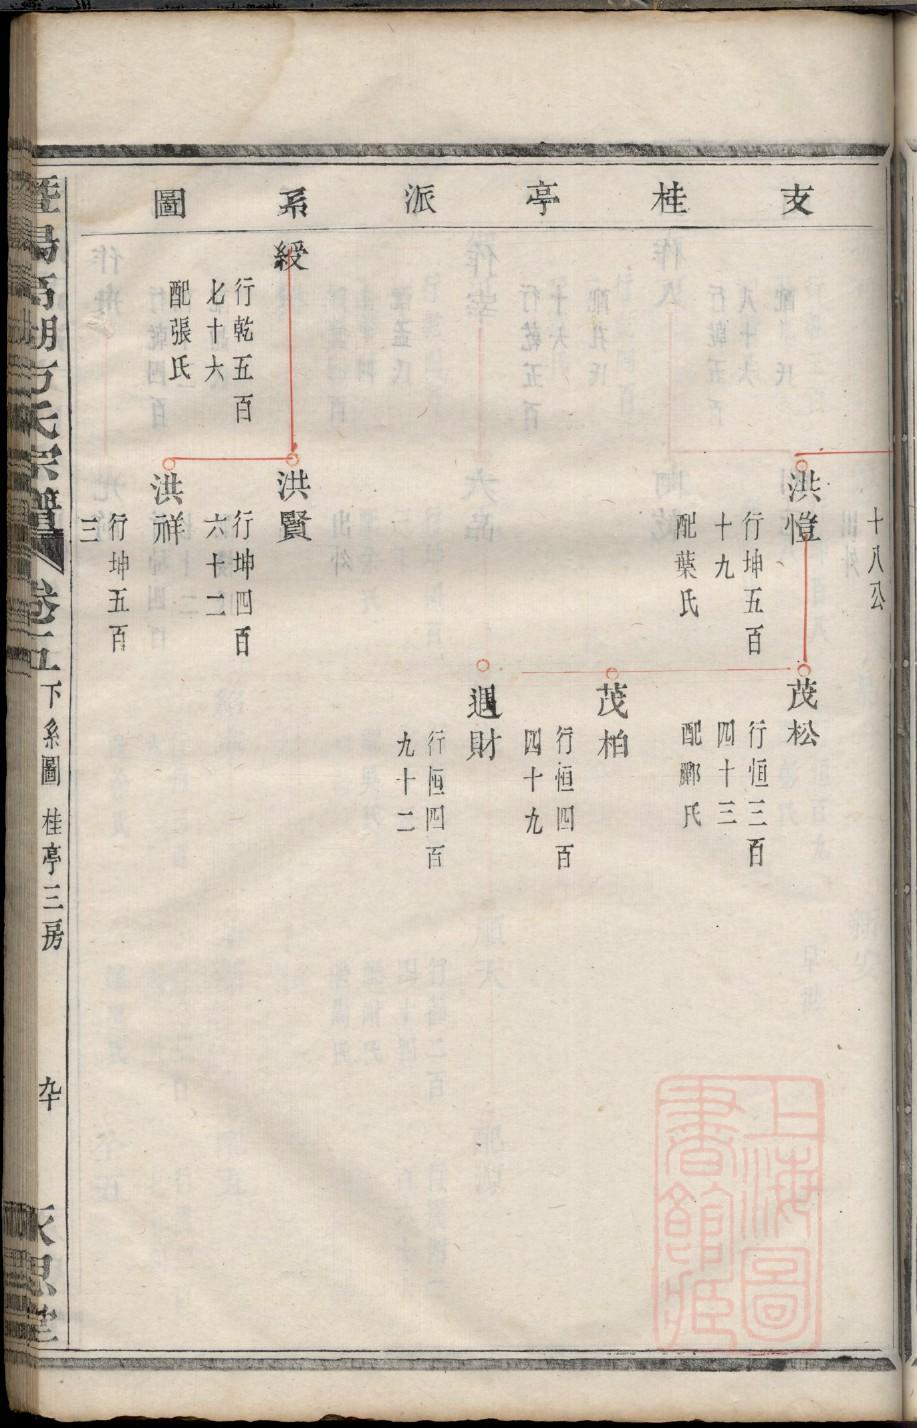 支桂亭派系圖
十八公
洪愷
行坤五百
十九
配葉氏
茂松
行恒三百
四十三
配酈氏
茂柏
行恒四百
四十九
遇財
行恒四百
九十二
綬
行乾五百
七十六
配張氏
洪賢
行坤四百
六十二
洪祥
行坤五百
三
暨陽高湖方氏宗譜
卷十五
下系圖 桂亭三房
永思堂
上海圖書館藏